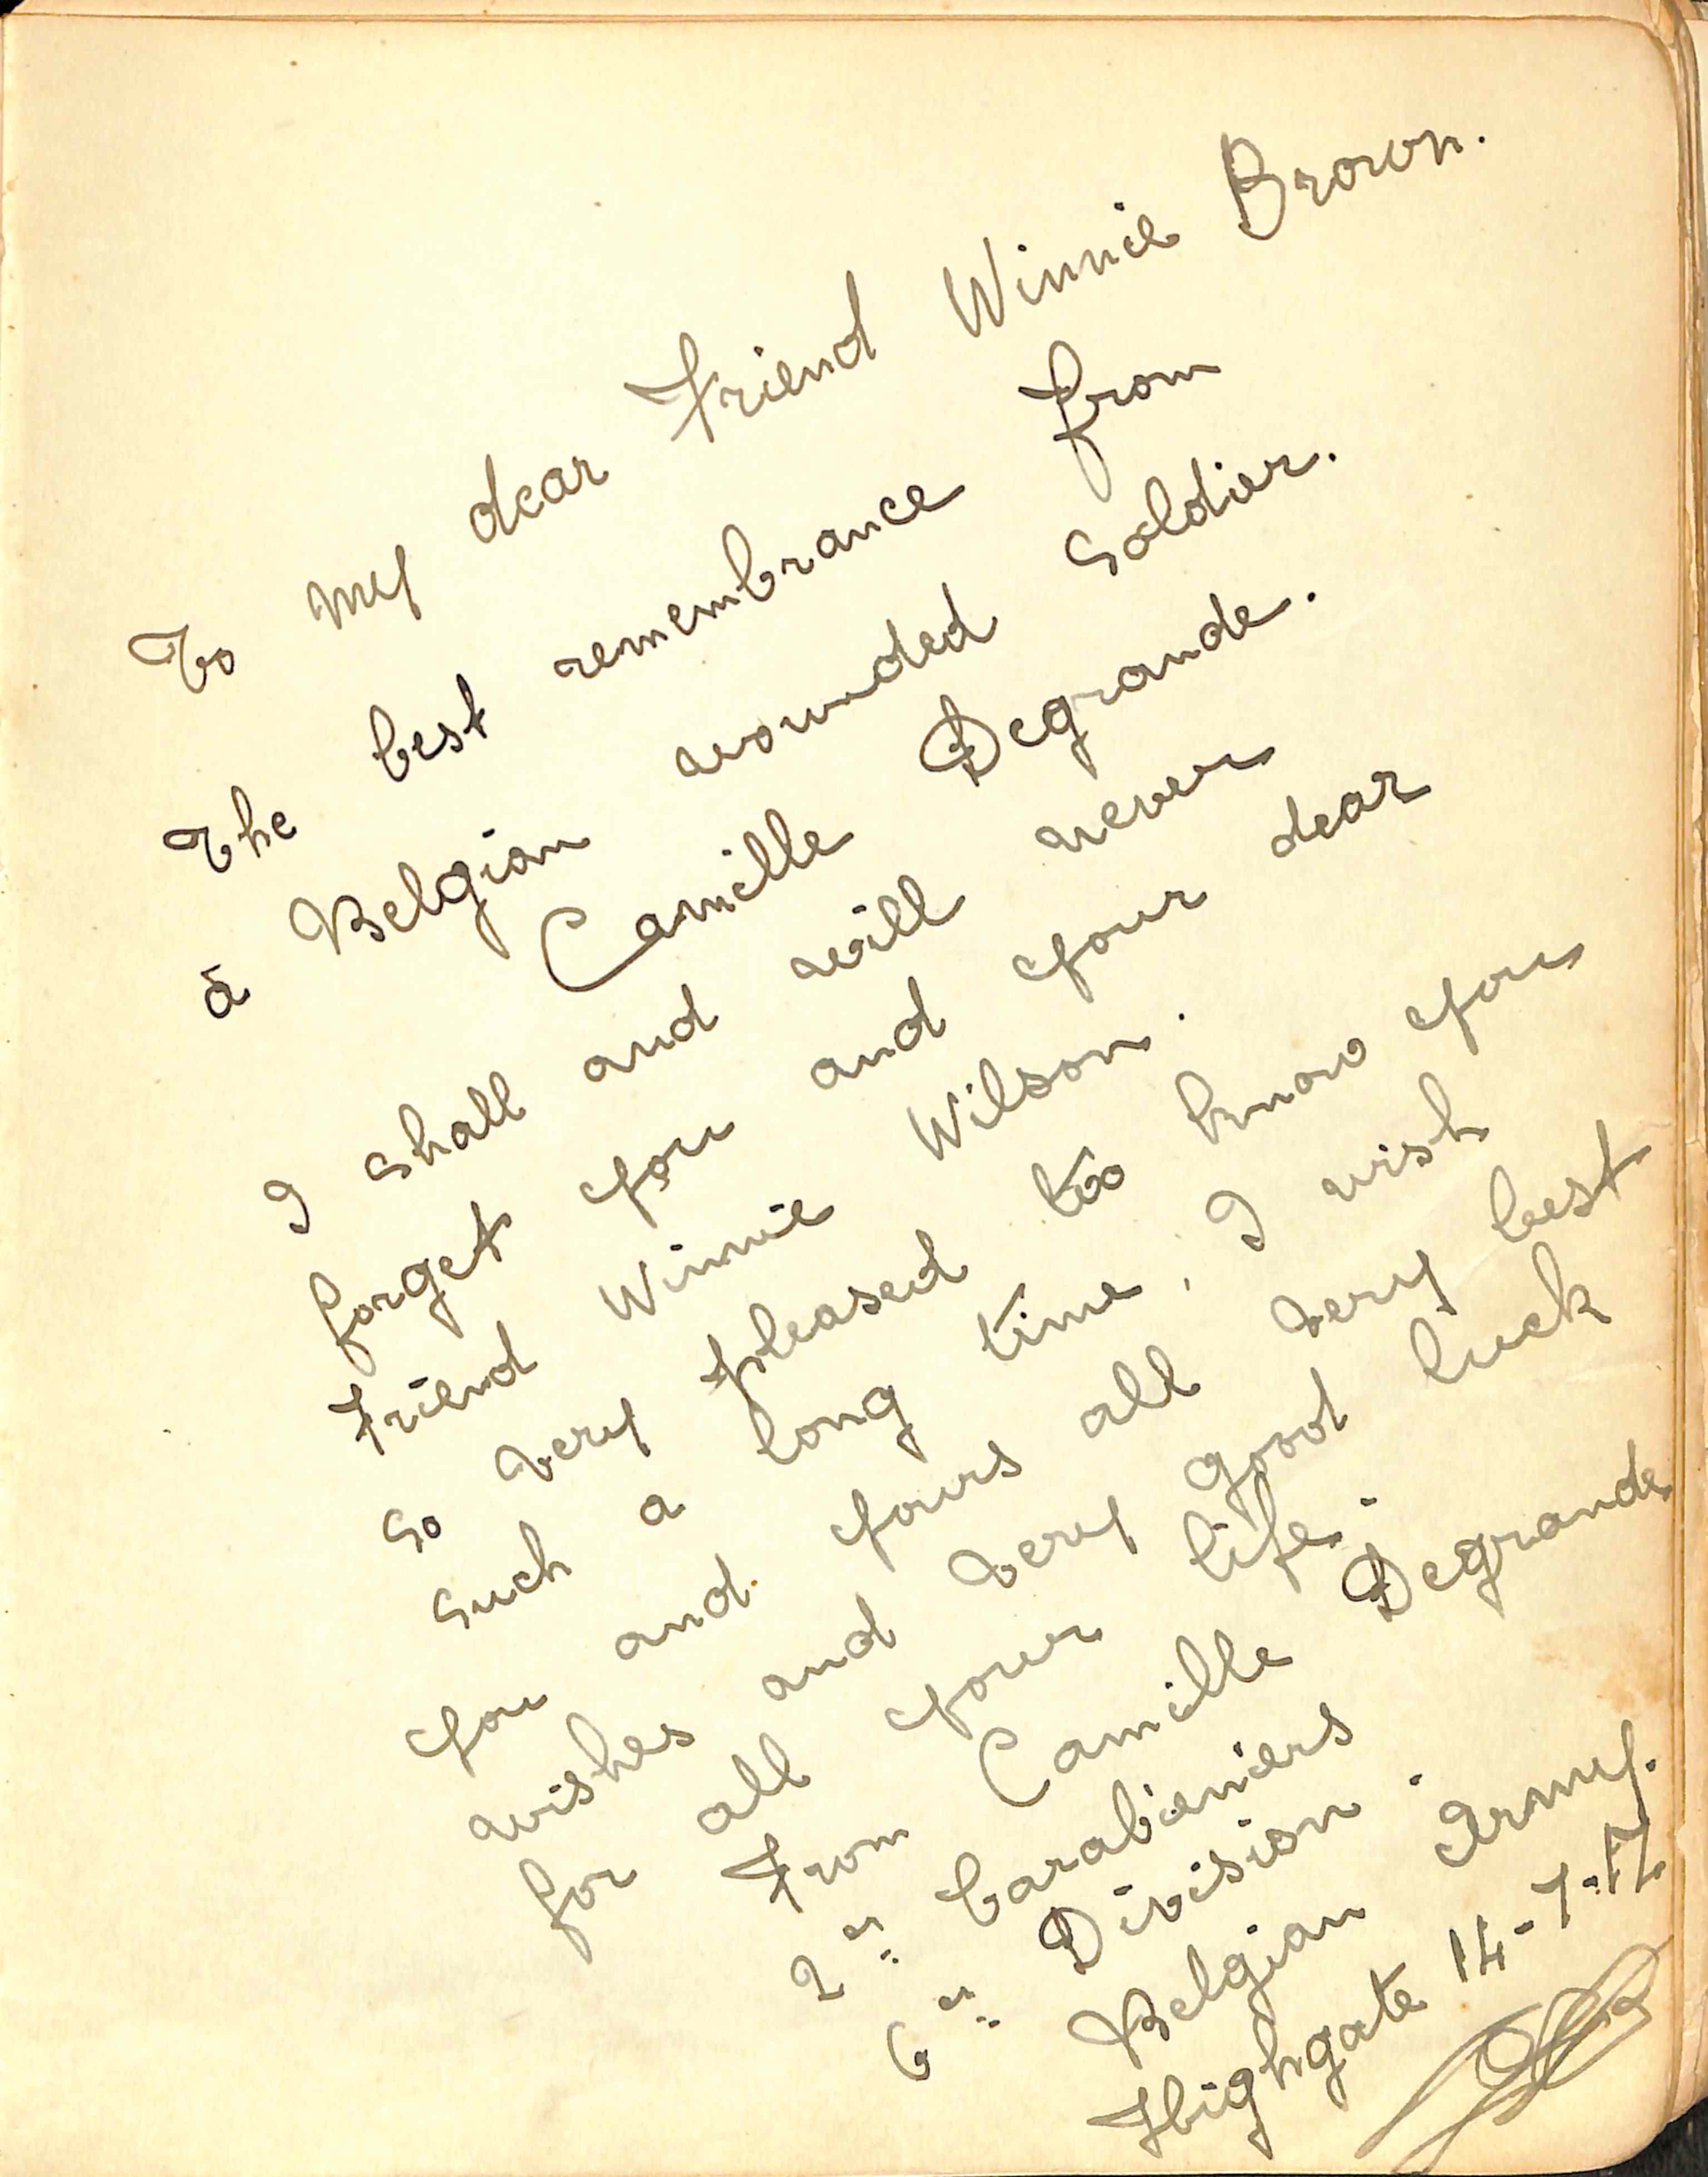 To my dear Friend Winnie Brown.
The best remembrance from
a Belgian wounded Soldier.
Camille Degrande.
I shall and will never
forget you and your dear
Friend Winnie Wilson.
So very pleased too know you
such a long time. I wish
you and yours all very best
wishes and very good luck
for all your life.
From Camille Degrande
2e Carabiniers
6e Division.
Belgian Army.
Highgate 14-7-17